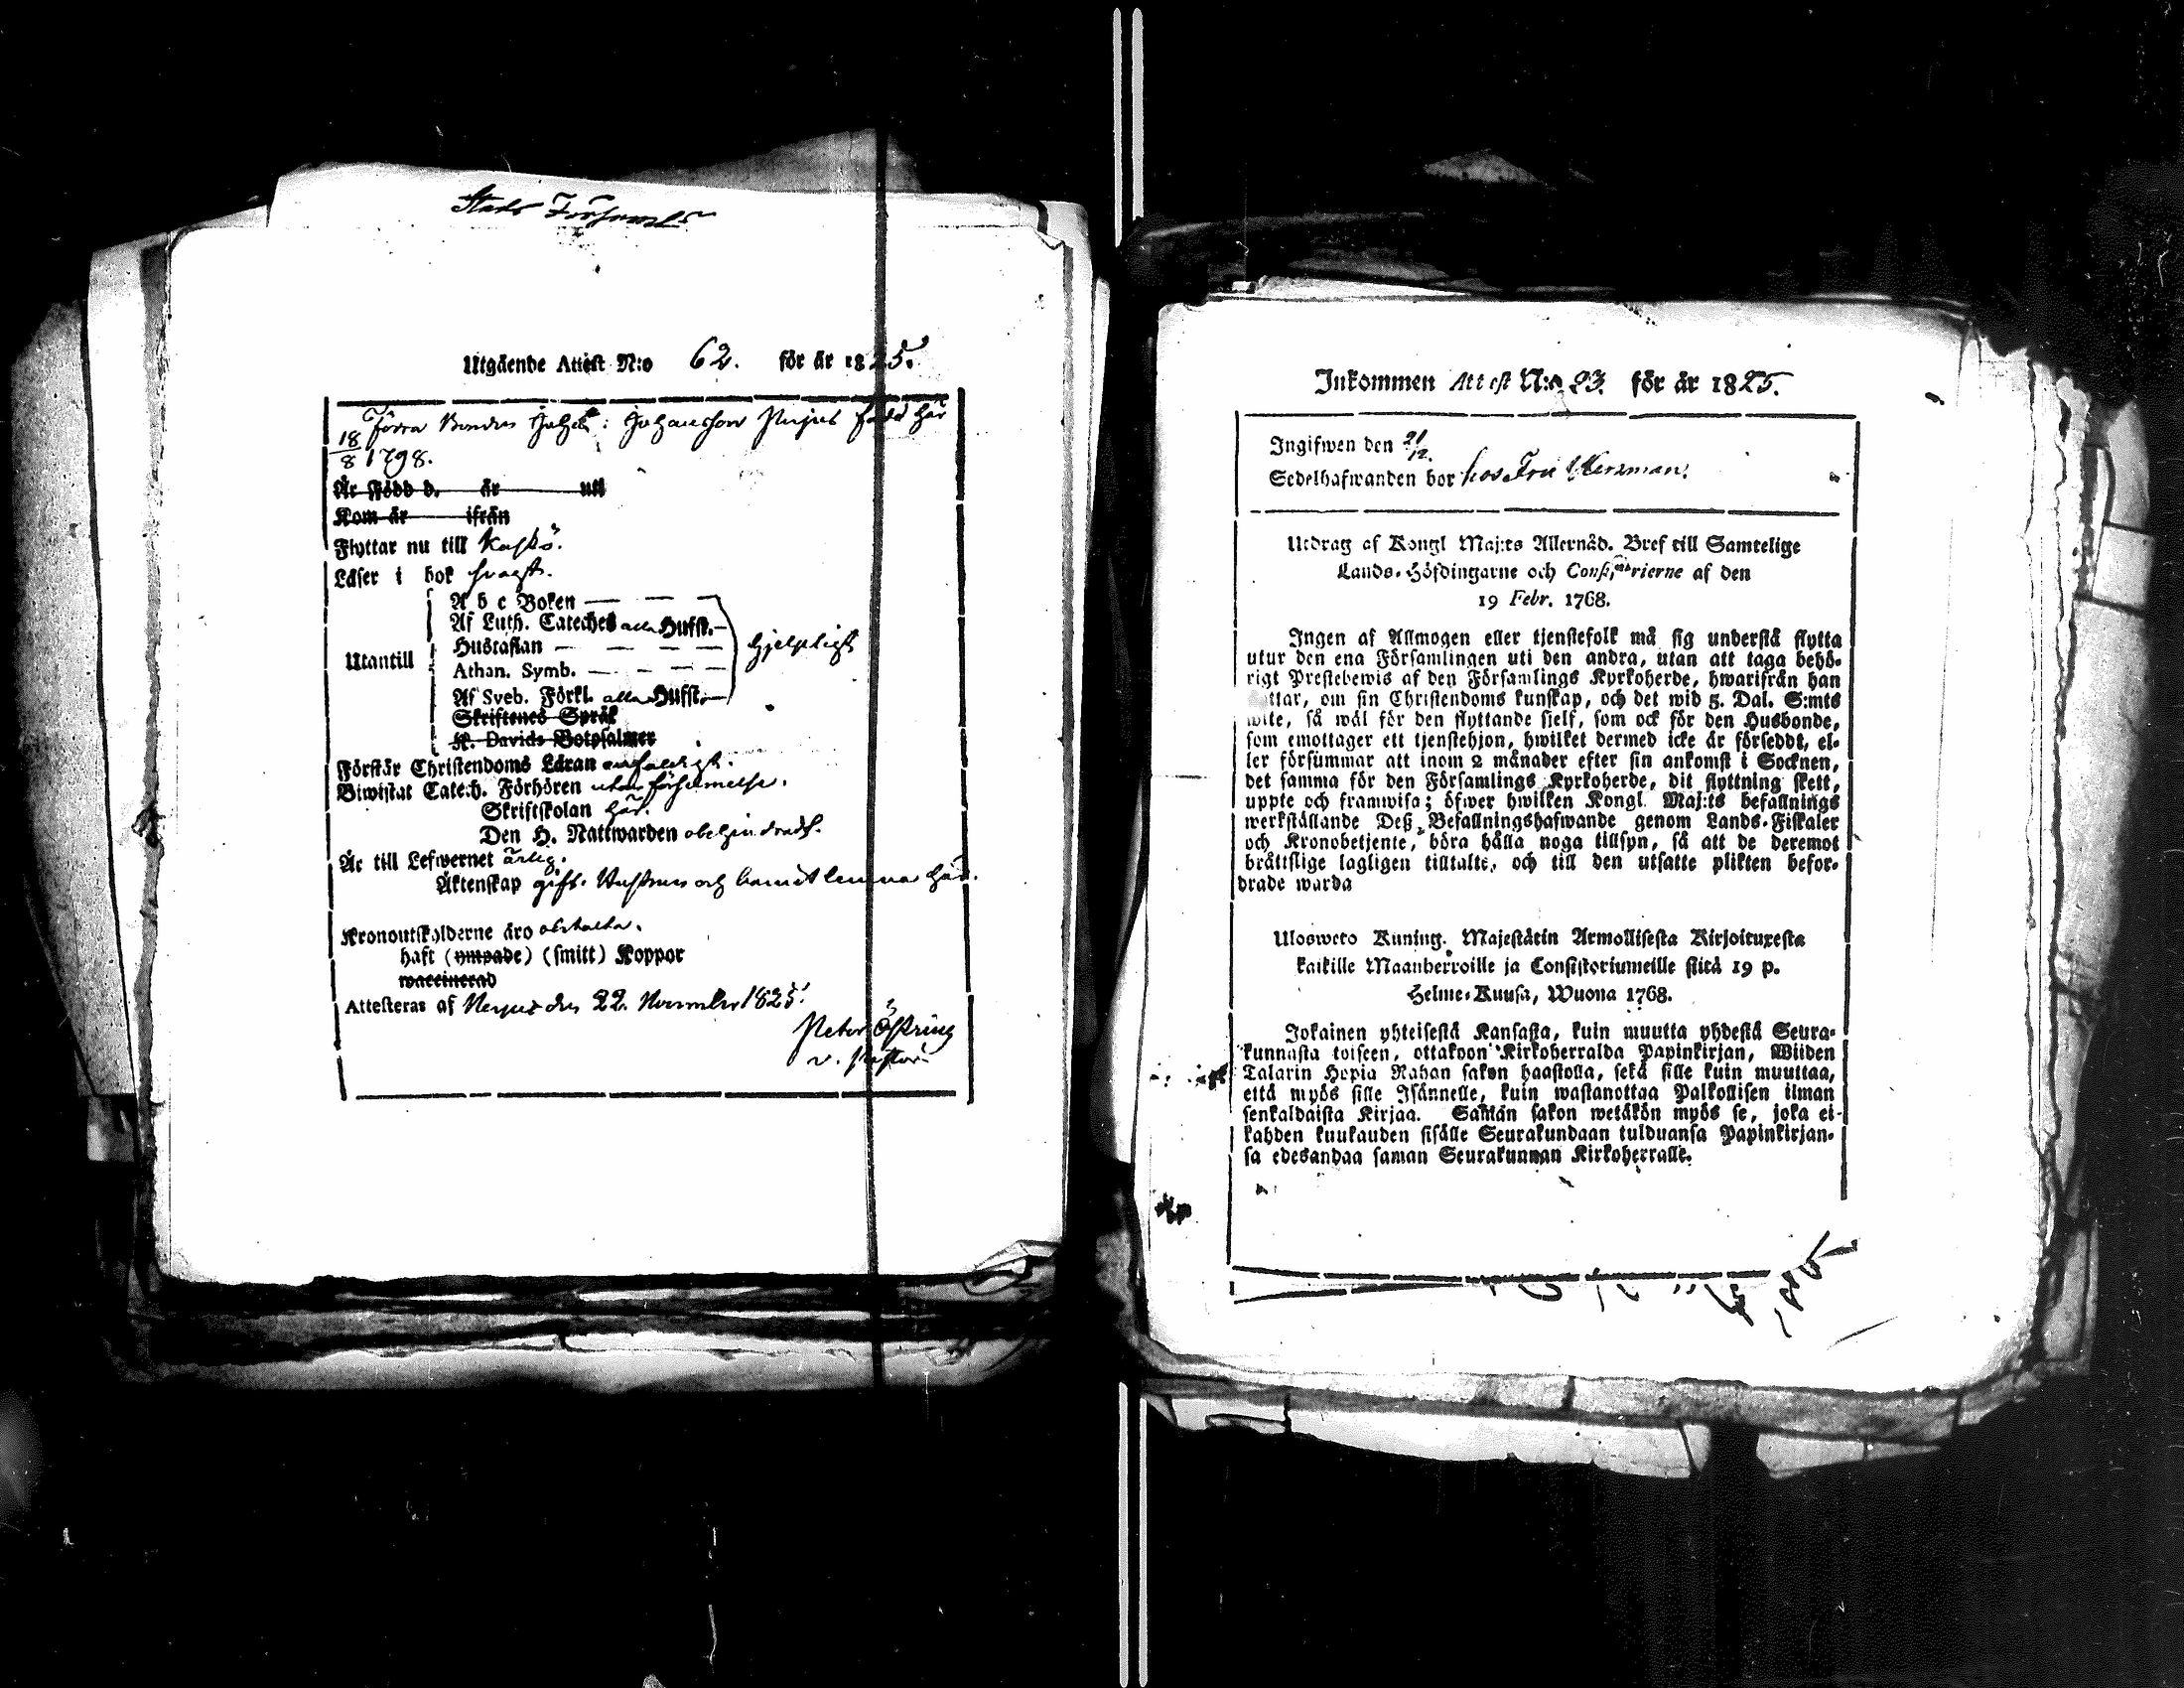 Utgående Attest N:o 62. för år 1825.
Förra Bonden Johansson född här
18/8 1798.
Är Född d. år uti
Kom år ifrån
Flyttar nu till Kaskö.
Läser i bok svagt.
Utantill
A b c Boken
Af Luth. Cateches alla Hufst.
Hustaflan
Athan. Symb.
Af Sveb. Förkl. alla Hufst.
hjelpligt
Skriftenes Språk
K. Davids Botpsalmer
Förstår Christendoms Läran enfaldigt.
Biwistat Catech. Förhören utan försummelse.
Skriftskolan här.
Den H. Nattwarden obehindradt.
Är till Lefwernet ärlig.
Äktenskap gift. Hustrun och barnet lemna här.
Kronoutskylderne äro betalta.
haft (ympade) (smitt) Koppor
waccinerad
Attesteras af Nerpes den 22. November 1825.
Peter Östring
v. Pastor
Inkommen Attest N:o 23. för år 1825.
Ingifwen den 21/12.
Sedelhafwanden bor hos Fru
Utdrag af Kongl Maj:ts Allernåd. Bref till Samtelige
Lands-Höfdingarne och Consistorierne af den
19 Febr. 1768.
Ingen af Allmogen eller tjenstefolk må sig understå flytta
utur den ena Församlingen uti den andra, utan att taga behö-
rigt Prestebewis af den Församlings Kyrkoherde, hwarifrån han
flyttar, om sin Christendoms kunskap, och det wid 5. Dal. S:mts
wite, så wäl för den flyttande sielf, som ock för den Husbonde,
som emottager ett tjenstehjon, hwilket dermed icke är försedt, el-
ler försummar att inom 2 månader efter sin ankomst i Socknen,
det samma för den Församlings Kyrkoherde, dit flyttning skett,
uppte och framwisa; öfwer hwilken Kongl. Maj:ts befallnings
werkställande Deß Befallningshafwande genom Lands-Fiskaler
och Kronobetjente, böra hålla noga tillsyn, så att de deremot
bråttslige lagligen tilltalte, och till den utsatte plikten befor-
drade warda
Ulosweto Kuning. Majestätin Armollisesta Kirjoituxesta
kaikille Maanherroille ja Consistoriumeille siitä 19 p.
Helme-Kuusa, Wuona 1768.
Jokainen yhteisestä Kansasta, kuin muutta yhdestä Seura-
kunnasta toiseen, ottakoon Kirkoherralda Papinkirjan, Wiiden
Talarin Hopia Rahan sakon haastolla, sekä sille kuin muuttaa,
että myös sille Isännelle, kuin wastanottaa Palkollisen ilman
senkaldaista Kirjaa. Samän sakon wetäkön myös se, joka ei
kahden kuukauden sisälle Seurakundaan tulduansa Papinkirjan-
sa edesandaa saman Seurakunnan Kirkoherralle.